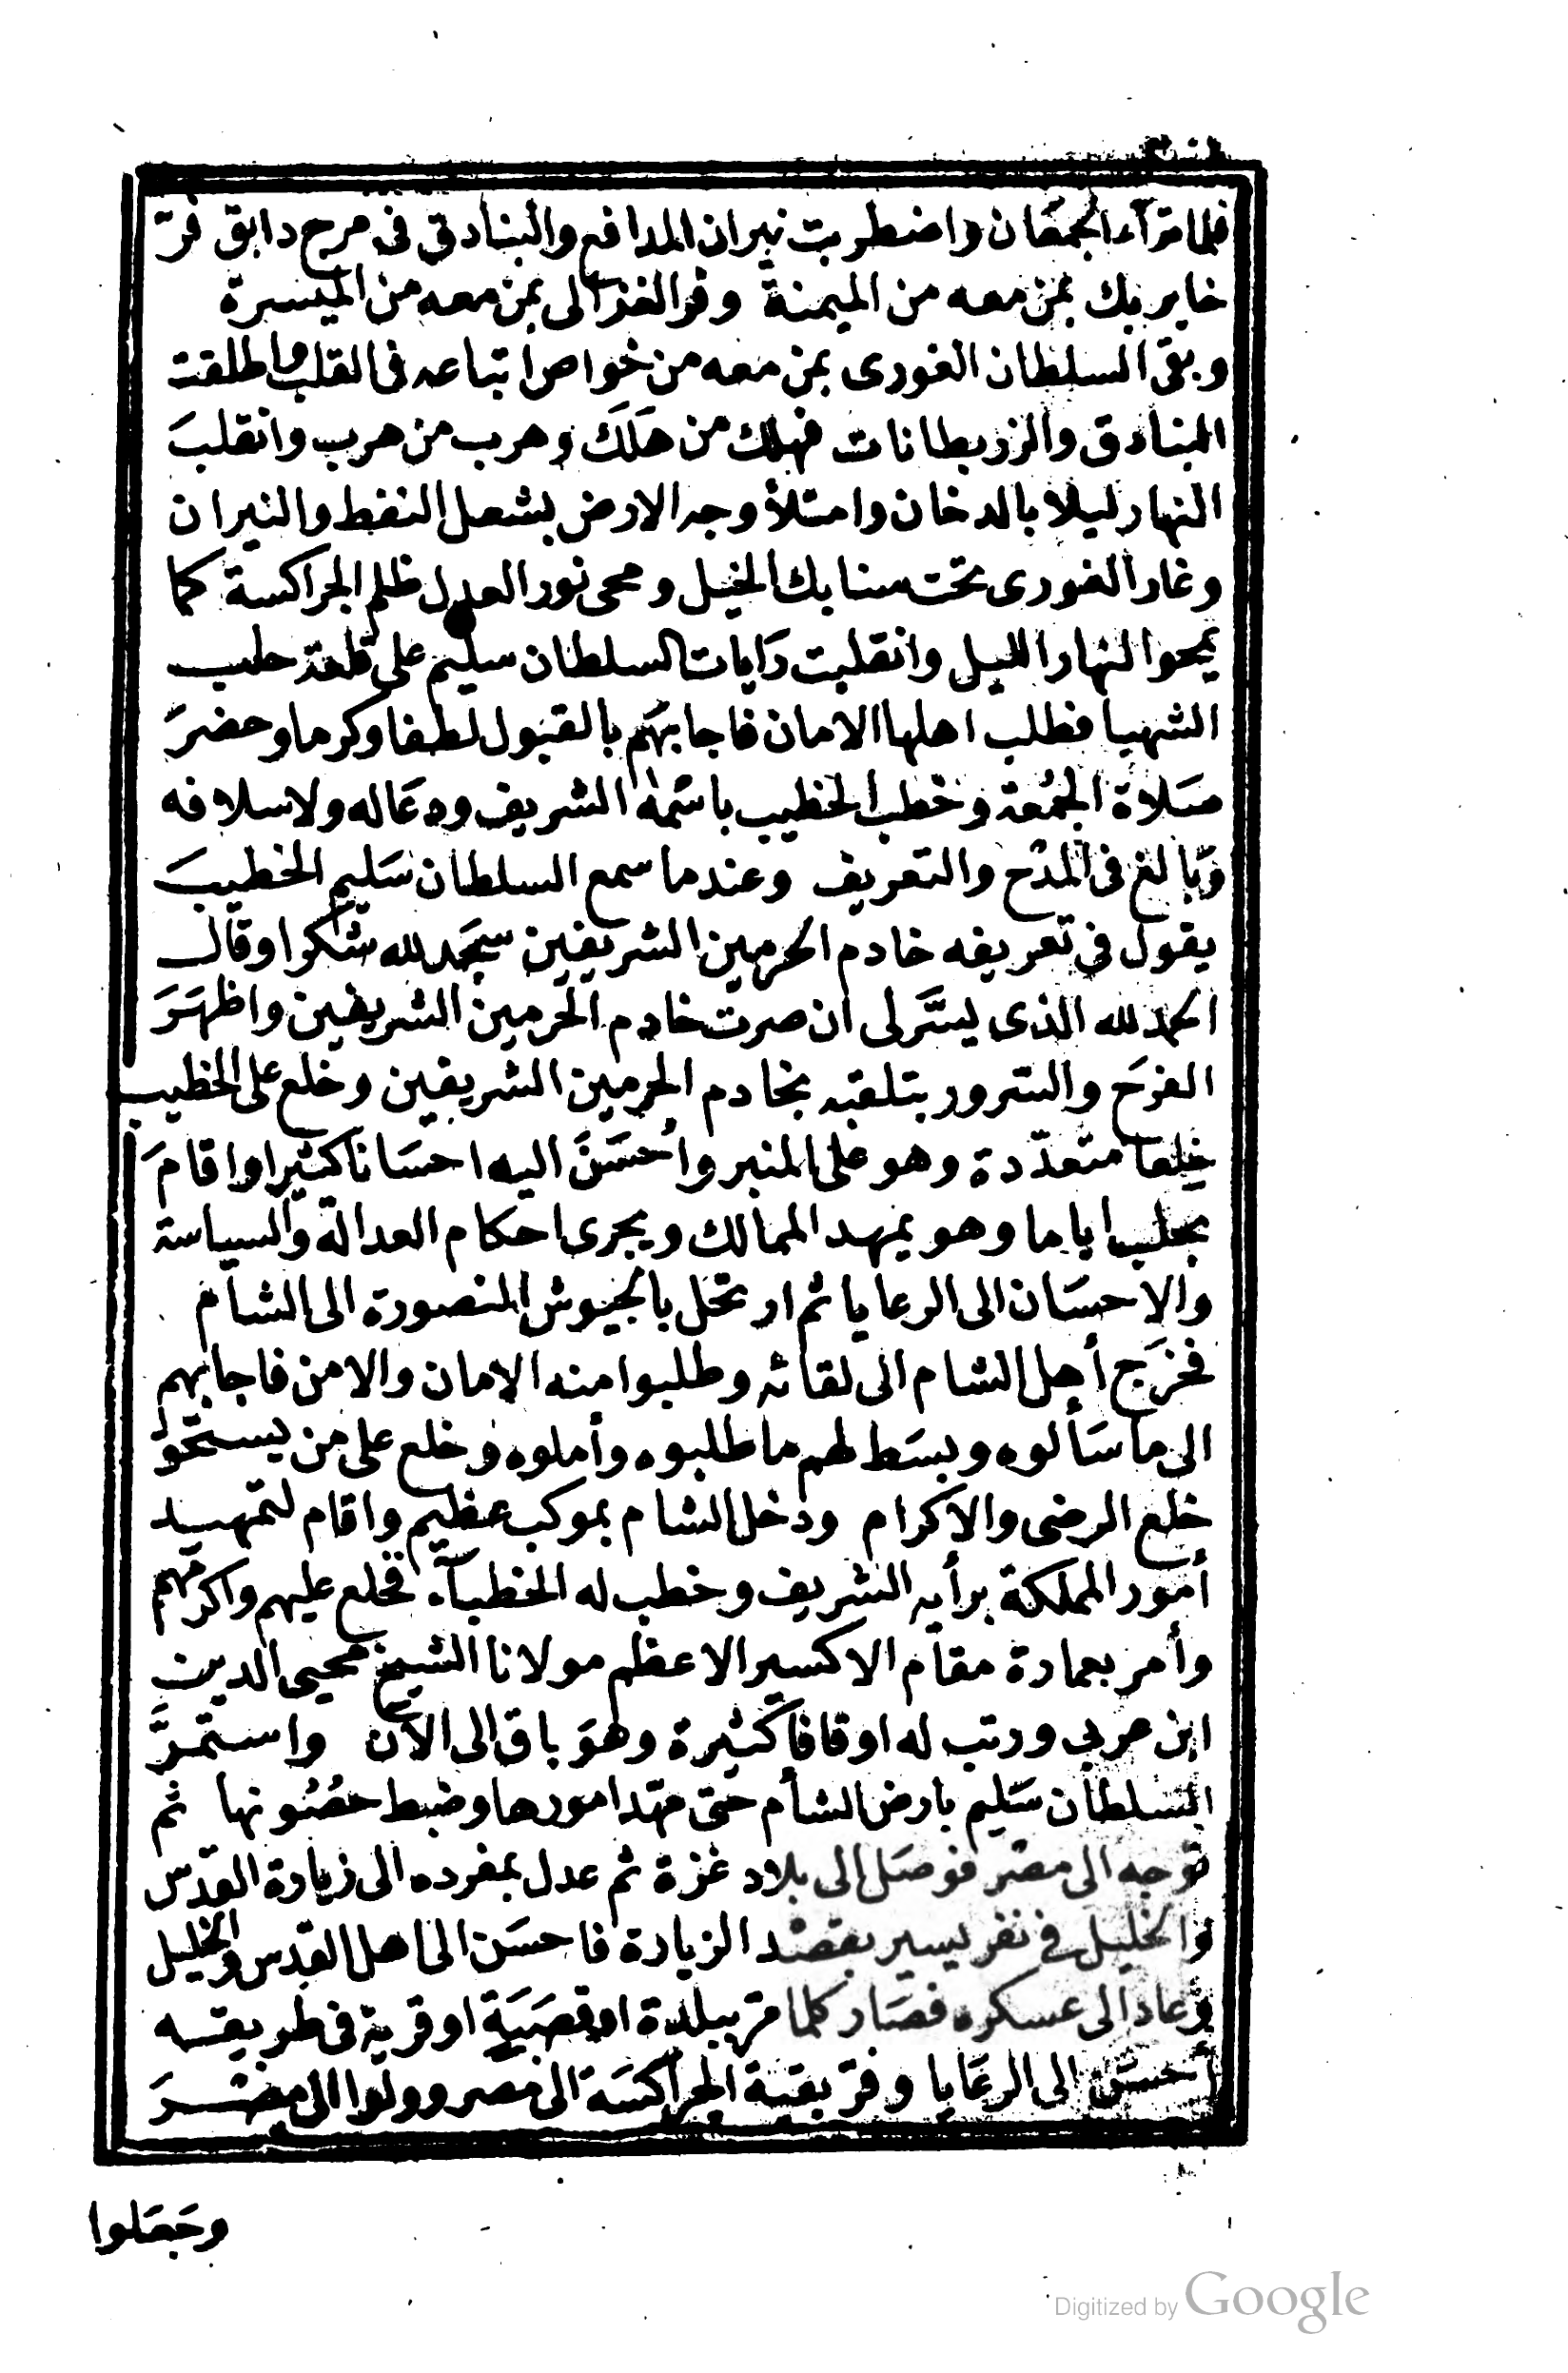 فلما ترآء الجمعان واضطربت نيران المدافع والبنادق فى مرج دابق فرّ
خاير بك بمن معه من الميمنة وفر الغزالى بمن معه من الميسرة
وبقى السلطان الغورى بمن معه من خواص اتباعه فى القلب واطلقت
البنادق والزربطانات فهلك من هَلَكَ وهرب من هرب وانقلبَ
النهار ليلا بالدخان وامتلأ وجه الارض بشعل النفط والنيران
وغار الغورى تحت سنابك الخيل ومحى نور العدل ظلم الجراكسة كما
يمحوا النهار الليل وانقلبت رَايات السلطان سليم على قلعة حلب
الشهبا فطلب اهلها الامان فاجابهَم بالقبول لطفا وكرما وحضرَ
صَلاة الجمُعة وخطب الخطيب باسمه الشريف ودعَا له ولاسلافه
وَبَالغ فى المدْح والتعريف وعندما سمع السلطان سَليم الخطيبَ
يقول فى تعريفه خادم الحرمين الشريفين سجَد لله شكرا وقال
الحمد لله الذى يسَّر لى ان صرت خادم الحَرمين الشريفين واظهَرَ
الفرَح والسّرور بتلقبه بخادم الحرمين الشريفين وخلع على الخطيب
خِلعا متعدّدة وهو على المنبر وأحسَنَ اليه احسَانا كثيرا واقامَ
بحلب اياما وهو يمهد الممالك ويجرى احكام العدالة والسياسة
والاحسَان الى الرعايا ثم ارتحَل بالجيوش المنصورة الى الشام
فخرَج أهل الشام الى لقائه وطلبوا منه الامان والامن فاجابهم
الى ما سَألوه وبسَط لهم ما طلبوه وأملوه وخلع على من يستحق
خلع الرضى والاكرام ودخل الشام بموكب عظيم واقام لتمهيد
أمور المملكة برأيه الشريف وخطب له الخطبآء فخلع عليهم واكرمهم
وأمر بعمارة مقام الاكسير الاعظم مولانا الشيخ محيى الدين
ابن عربى ورتب له اوقافا كثيرة وهوَ باق الى الآن واستمرَّ
السلطان سَليم بارض الشأم حتى مهّد امورها وضبط حصُونها ثم
توجه الى مصْر فوصَل الى بلاد غزة ثم عدل بمفرده الى زيارة القدس
والخليل فى نفر يسير بقصْد الزيارة فاحسَن الى اهل القدس والخليل
وَعاد الى عسكره فصَار كلما مَرّ ببلدة او قصَبَة او قرية فى طريقه
أحسَن الى الرعَايا وفرّ بقية الجراكسَة الى مصر وولوا الى مصْرَ
وجَعَلوا
Digitized by Google